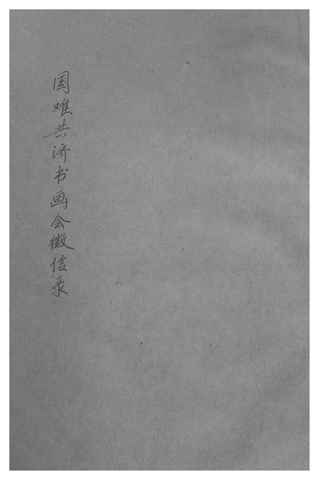 国难共济书画会徵信录